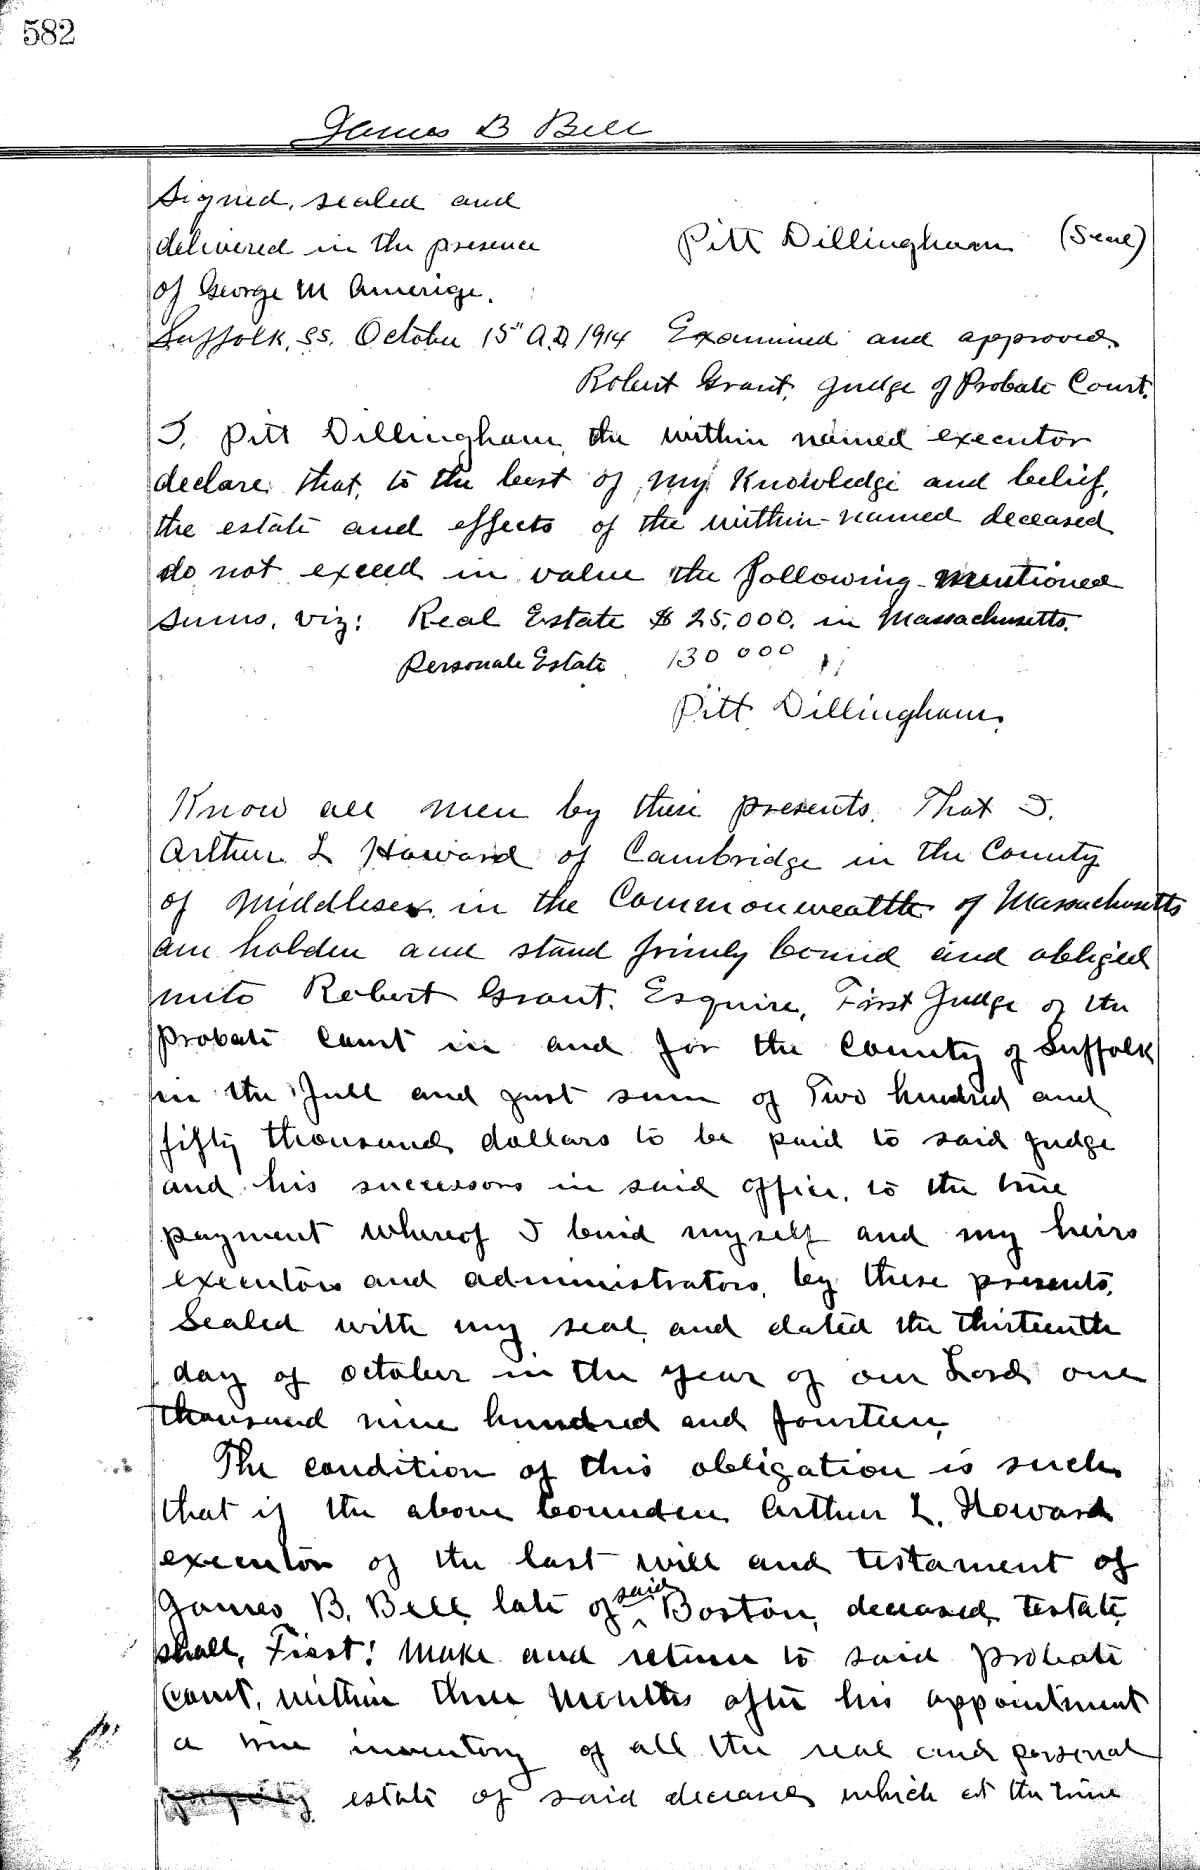 582
James B Bell
Signed, sealed and
delivered in the presence Pitt Dillingham (Seal)
of George M Amerige.
Suffolk, SS. October 15" A.D. 1914 Examined and approved.
Robert Grant, Judge of Probate Court.
I, Pitt Dillingham, the within named executor
declare, that, to the best of my knowledge and belief,
the estate and effects of the within-named deceased
do not exceed in value the following-mentioned
sums, viz: Real Estate $ 25,000. in Massachusetts.
Personale Estate 130 000 "
Pitt Dillingham.
Know all men by these presents, That I,
Arthur L Howard of Cambridge in the County
of Middlesex, in the Commonwealth of Massachusetts
am holden and stand firmly bound and obliged
unto Robert Grant, Esquire, First Judge of the
Probate Court in and for the County of Suffolk
in the full and just sum of Two hundred and
fifty thousand dollars to be paid to said judge
and his successors in said office, to the true
payment whereof I bind myself and my heirs
executors and administrators, by these presents.
Sealed with my seal, and dated the thirteenth
day of October in the year of our Lord one
thousand nine hundred and fourteen,
The condition of this obligation is such
that if the above bounden Arthur L. Howard
executor of the last will and testament of
James B. Bell, late of said Boston, deceased, testate,
shall, First: Make and return to said probate
court, within three months after his appointment
a true inventory of all the real and personal
estate of said deceased which at the time